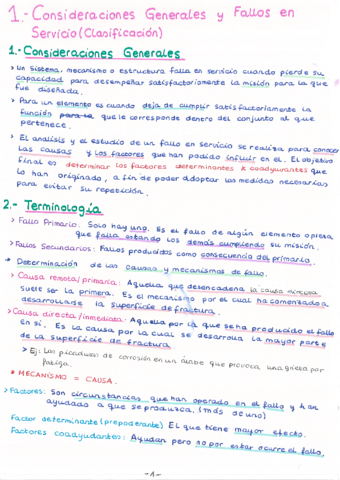 1.- Consideraciones Generales y Fallos en
Servicio (Clasificación)
1.- Consideraciones Generales
> Un sistema, mecanismo o estructura falla en servicio cuando pierde su
capacidad para desempeñar satisfactoriamente la misión para la que
fue diseñada.
> Para un elemento es cuando deja de cumplir satisfactoriamente la
función para la que le corresponde dentro del conjunto al que
pertenece.
> El análisis y el estudio de un fallo en servicio se realiza para conocer
las causas y los factores que han podido influir en el. El objetivo
final es determinar los factores determinantes y coadyuvantes que
lo han originado, a fin de poder adoptar las medidas necesarias
para evitar su repetición.
2.- Terminología
> Fallo Primario: Solo hay uno. Es el fallo de algún elemento opiera
que falla estando los demás cumpliendo su misión.
> Fallos Secundarios: Fallos producidos como consecuencia del primario.
Determinación de las causas y mecanismos de fallo.
> Causa remota/primaria: Aquella que desencadena la causa
suele ser la primera. Es el mecanismo por el cual ha comenzado a
desarrollarse la superficie de fractura.
> Causa directa/inmediata: Aquella por la que se ha producido el fallo
en sí. Es la causa por la cual se desarrolla la mayor parte
de la superficie de fractura.
> Ej: Las picaduras de corrosión en un que provoca una grieta por
fatiga.
* MECANISMO = CAUSA.
> Factores: Son circunstancias que han operado en el fallo y han
ayudado a que se produzca. (más de uno)
Factor determinante (prepoderante) El que tiene mayor efecto.
Factores coadyudantes: Ayudan pero no por estar ocurre el fallo.
-1-